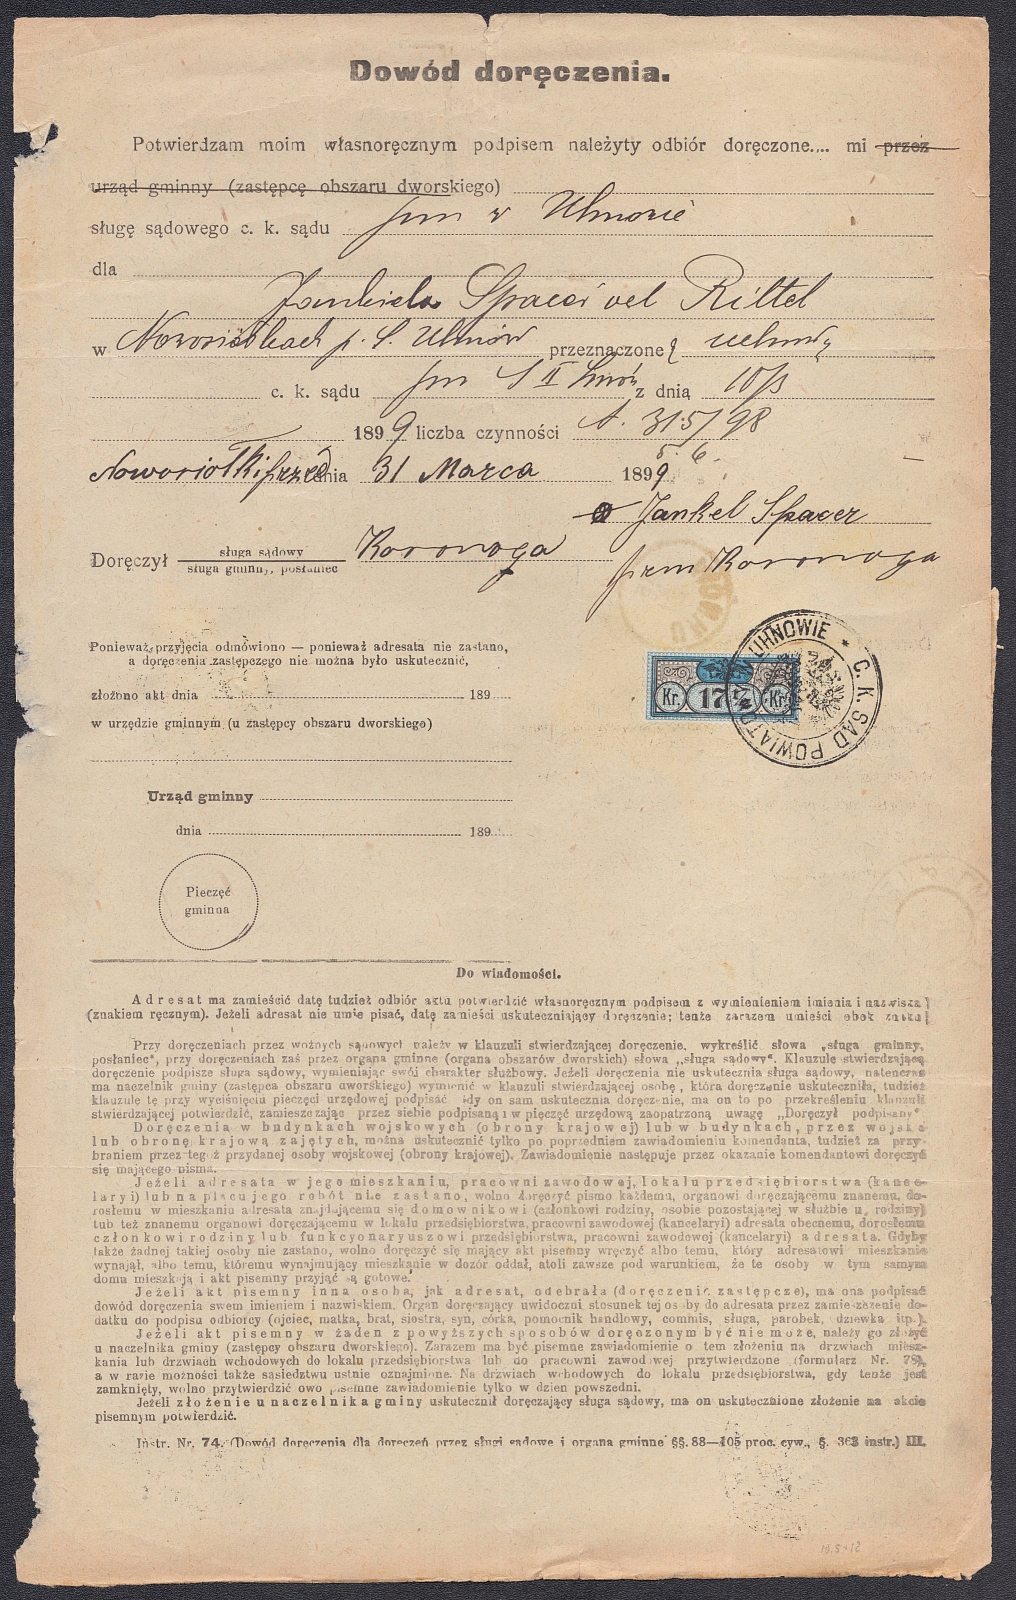 Dowód doręczenia.
Potwierdzam moim własnoręcznym podpisem należyty odbiór doręczone.... mi przez
urząd gminny (zastępcę obszaru dworskiego)
sługę sądowego c. k. sądu pow w Uhnowie
dla
Jankiela Spacer vel Rittel
w Nowosiółkach p. S. Uhnów przeznaczone uchwałę
c. k. sądu pow S II Lwów z dnia 10/3
1899 liczba czynności A. 315/98
5. 6.
Nowosiółki przed dnia 31 Marca 1899
Jankel Spacer
Doręczył sługa sądowy Koronoga
sługa gminny, posłaniec
przm Koronoga
Ponieważ przyjęcia odmówiono — ponieważ adresata nie zastano,
a doręczenia zastępczego nie można było uskutecznić,
złożono akt dnia 189
w urzędzie gminnym (u zastępcy obszaru dworskiego)
Kr. 17 ½ Kr.
C. K. SĄD POWIATOWY W UHNOWIE *
Urząd gminny
dnia 189
Pieczęć
gminna
Do wiadomości.
Adresat ma zamieścić datę tudzież odbiór aktu potwierdzić własnoręcznym podpisem z wymienieniem imienia i nazwiska
(znakiem ręcznym). Jeżeli adresat nie umie pisać, datę zamieści uskuteczniający doręczenie; tenże zarazem umieści obok znaku
Przy doręczeniach przez woźnych sądowych należy w klauzuli stwierdzającej doręczenie, wykreślić słowa „sługa gminny,
posłaniec", przy doręczeniach zaś przez organa gminne (organa obszarów dworskich) słowa „sługa sądowy". Klauzulę stwierdzającą
doręczenie podpisze sługa sądowy, wymieniając swój charakter służbowy. Jeżeli doręczenia nie uskutecznia sługa sądowy, natenczas
ma naczelnik gminy (zastępca obszaru dworskiego) wymienić w klauzuli stwierdzającej osobę, która doręczenie uskuteczniła, tudzież
klauzulę tę przy wyciśnięciu pieczęci urzędowej podpisać gdy on sam uskutecznia doręczenie, ma on to po przekreśleniu klauzuli
stwierdzającej potwierdzić, zamieszczając przez siebie podpisaną i w pieczęć urzędową zaopatrzoną uwagę „Doręczył podpisany"
Doręczenia w budynkach wojskowych (obrony krajowej) lub w budynkach, przez wojsko
lub obronę krajową zajętych, można uskutecznić tylko po poprzedniem zawiadomieniu komendanta, tudzież za przy-
braniem przez tegoż przydanej osoby wojskowej (obrony krajowej). Zawiadomienie następuje przez okazanie komendantowi doręczyć
się mającego pisma.
Jeżeli adresata w jego mieszkaniu, pracowni zawodowej, lokalu przedsiębiorstwa (kance-
laryi) lub na placu jego robót nie zastano, wolno doręczyć pismo każdemu, organowi doręczającemu znanemu, do-
rosłemu w mieszkaniu adresata znajdującemu się domownikowi (członkowi rodziny, osobie pozostającej w służbie u rodziny)
lub też znanemu organowi doręczającemu w lokalu przedsiębiorstwa, pracowni zawodowej (kancelaryi) adresata obecnemu, dorosłemu
członkowi rodziny lub funkcyonaryuszowi przedsiębiorstwa, pracowni zawodowej (kancelaryi) adresata. Gdyby
także żadnej takiej osoby nie zastano, wolno doręczyć się mający akt pisemny wręczyć albo temu, który adresatowi mieszkanie
wynajął, albo temu, któremu wynajmujący mieszkanie w dozór oddał, atoli zawsze pod warunkiem, że te osoby w tym samym
domu mieszkają i akt pisemny przyjąć są gotowe.
Jeżeli akt pisemny inna osoba, jak adresat, odebrała (doręczenie zastępcze), ma ona podpisać
dowód doręczenia swem imieniem i nazwiskiem. Organ doręczający uwidoczni stosunek tej osoby do adresata przez zamieszczenie do-
datku do podpisu odbiorcy (ojciec, matka, brat, siostra, syn, córka, pomocnik handlowy, commis, sługa, parobek, dziewka itp.).
Jeżeli akt pisemny w żaden z powyższych sposobów doręczonym być nie może, należy go złożyć
u naczelnika gminy (zastępcy obszaru dworskiego). Zarazem ma być pisemne zawiadomienie o tem złożeniu na drzwiach miesz-
kania lub drzwiach wchodowych do lokalu przedsiębiorstwa lub do pracowni zawodowej przytwierdzone (formularz Nr. 78),
a w razie możności także sąsiedztwu ustnie oznajmione. Na drzwiach wchodowych do lokalu przedsiębiorstwa, gdy tenże jest
zamknięty, wolno przytwierdzić owo pisemne zawiadomienie tylko w dzień powszedni.
Jeżeli złożenie u naczelnika gminy uskutecznił doręczający sługa sądowy, ma on uskutecznione złożenie na akcie
pisemnym potwierdzić.
Instr. Nr. 74. (Dowód doręczenia dla doręczeń przez sługi sądowe i organa gminne §§. 88—105 proc. cyw., §. 362 instr.) III.